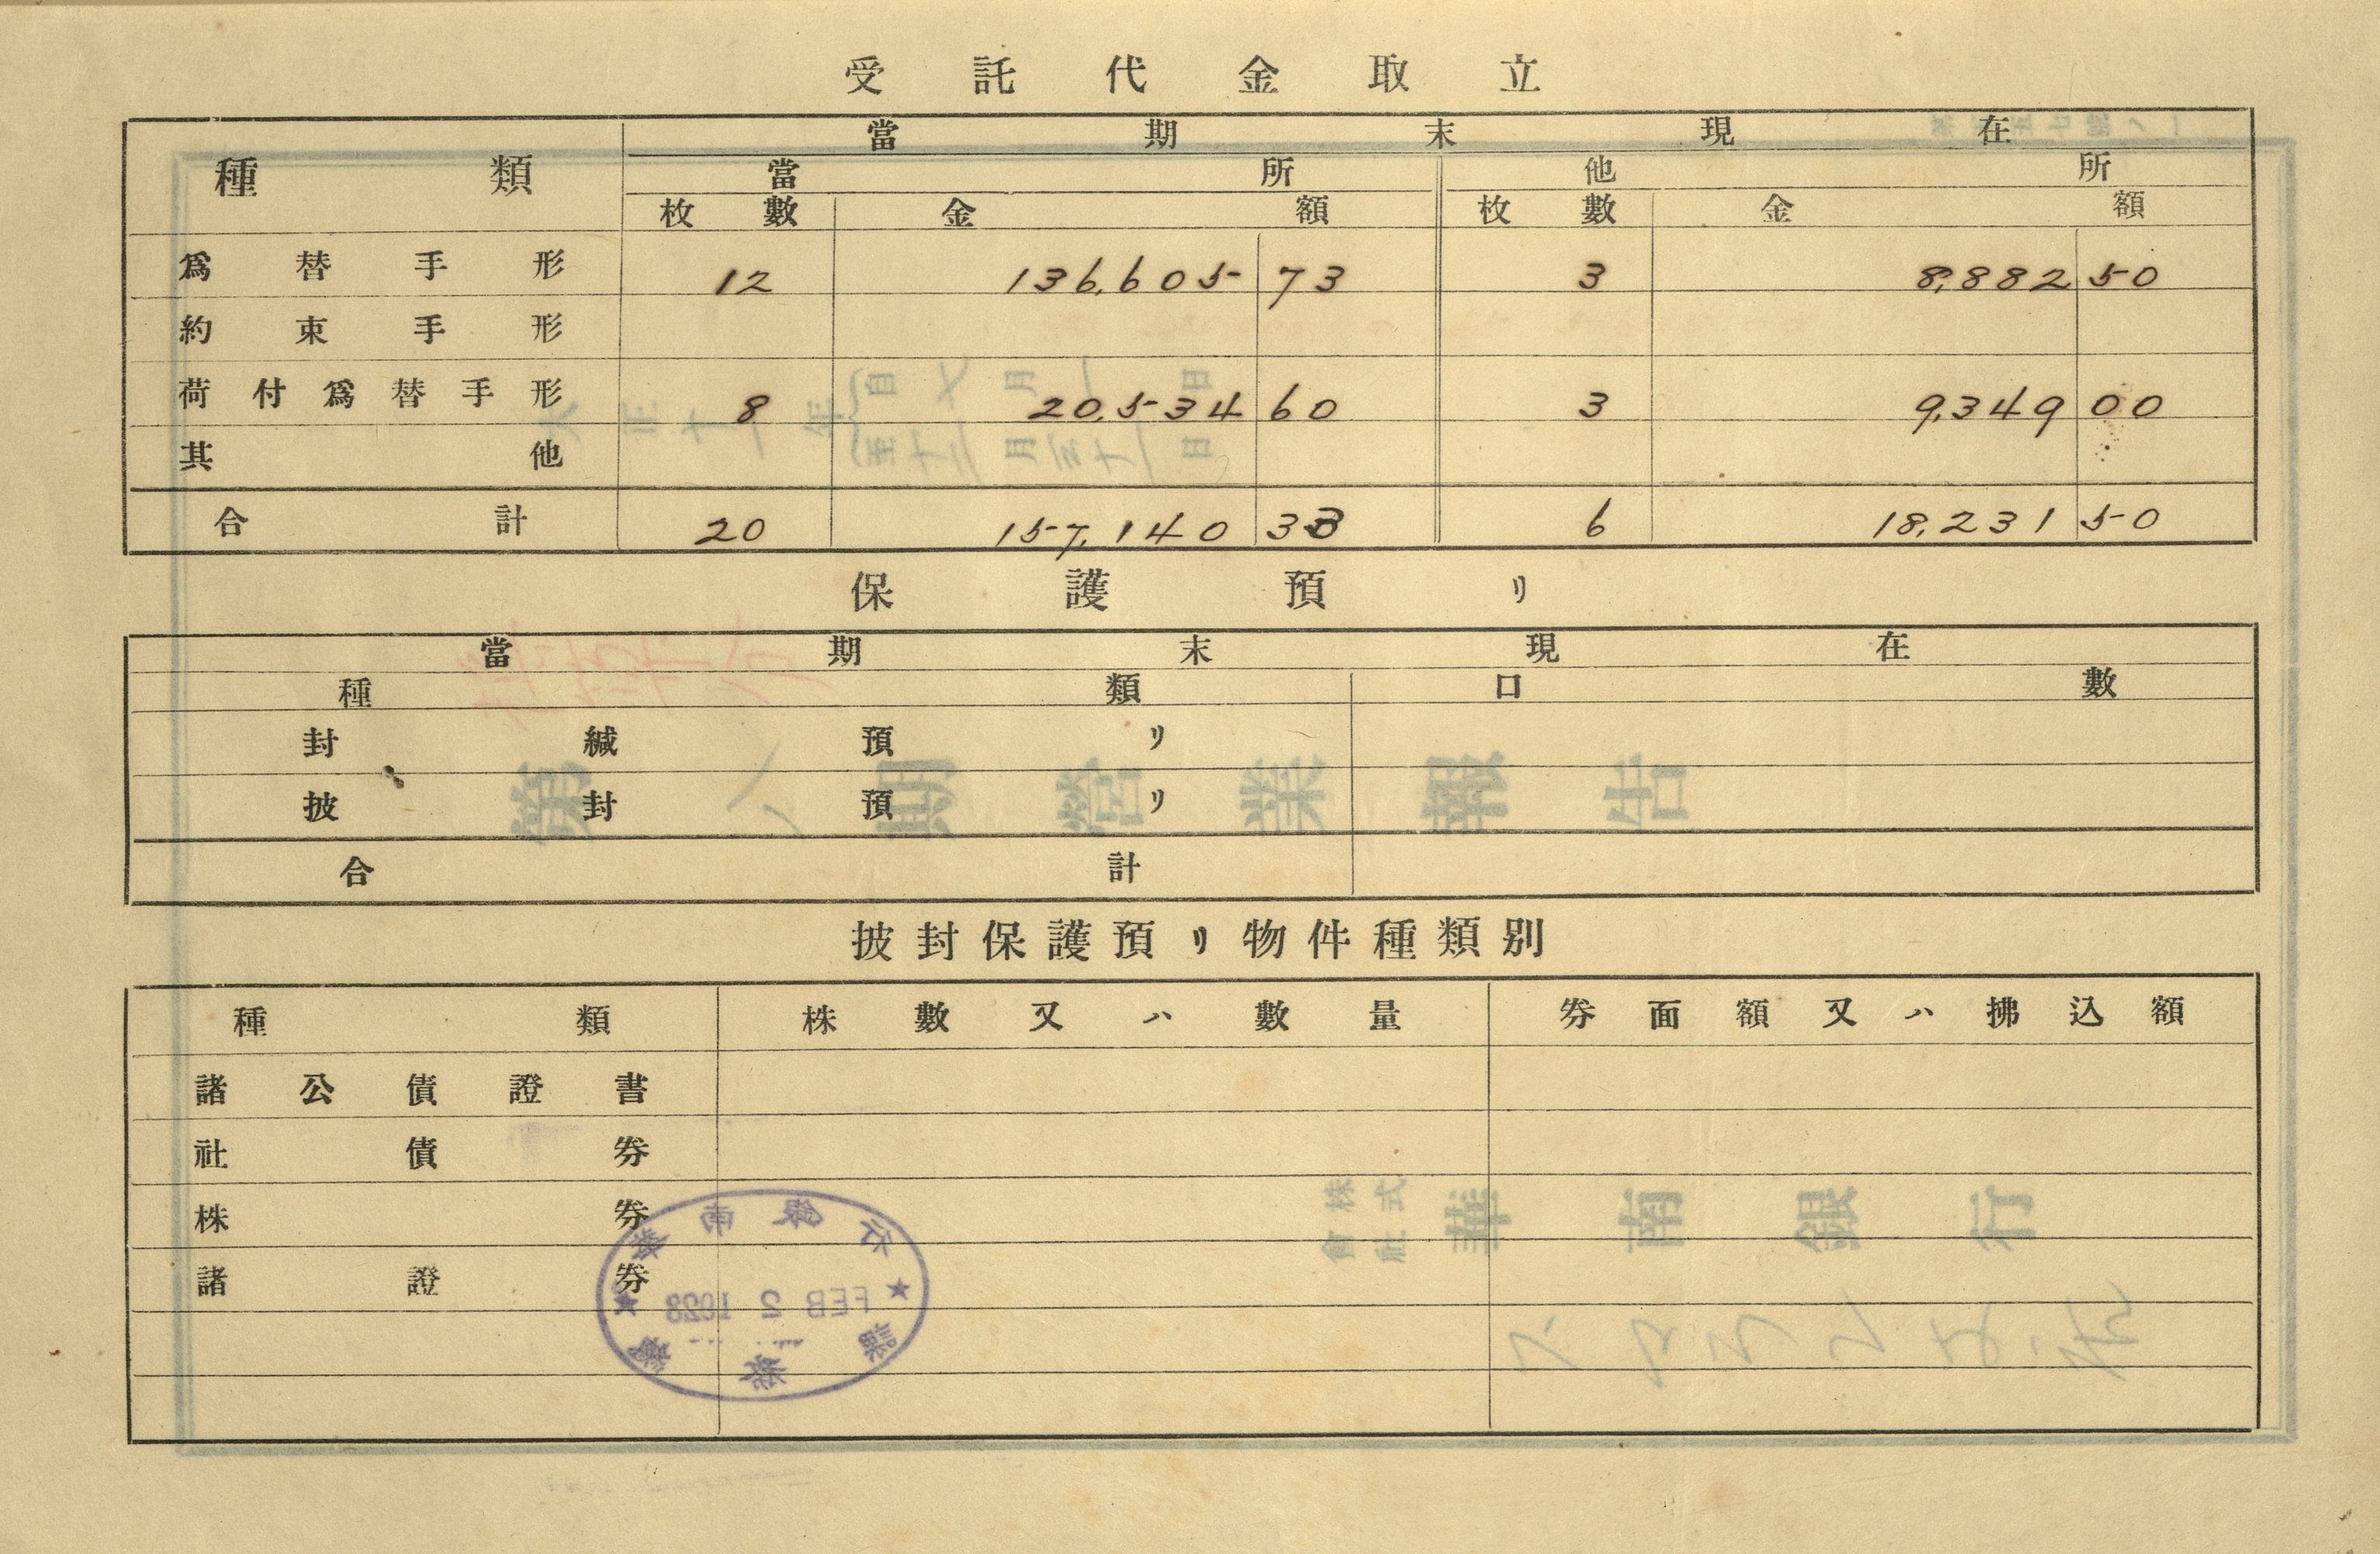 受託代金取立
種類 當期末現在
當所 他所
枚數 金額 枚數 金額
爲替手形 12 136,605 73 3 8,882 50
約束手形
荷付爲替手形 8 20,534 60 3 9,349 00
其他
合計 20 157,140 33 6 18,231 50
保護預リ
當期末現在
種類 口數
封緘預リ
披封預リ
合計
披封保護預リ物件種類別
種類 株數又ハ數量 券面額又ハ拂込額
諸公債證書
社債券
株券
諸證券
第八期營業報告
株式會社 華南銀行
FEB 2 1923